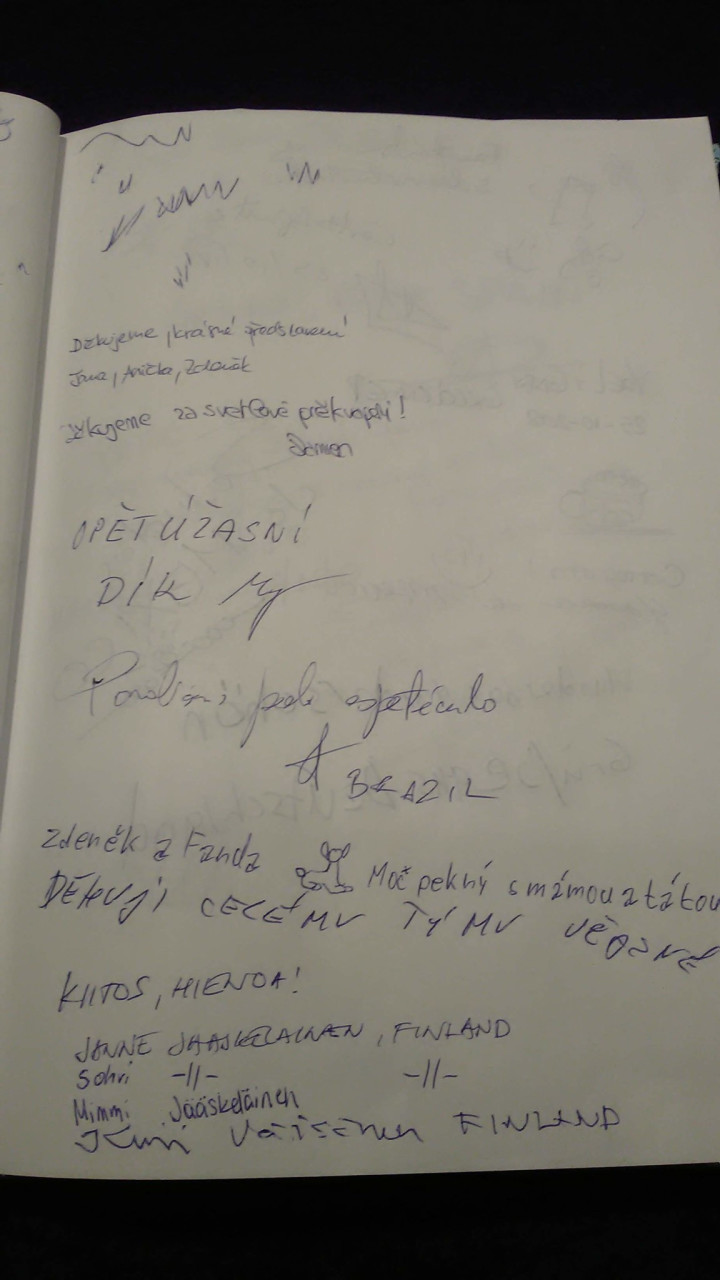 Děkujeme, krásné představení
Jana, Anička, Zdeněk
Děkujeme za světlové překvapení!
OPĚT ÚŽASNÍ
DÍK
pelo espetáculo
BRAZIL
Zdeněk a Fanda
Moč pekný s mámou a tátou
DĚKUJI CELÉMU TÝMU
KIITOS, HIENOA!
JANNE JÄÄSKELÄINEN, FINLAND
Sohvi -||- -||-
Mimmi Jääskeläinen
Väisänen FINLAND